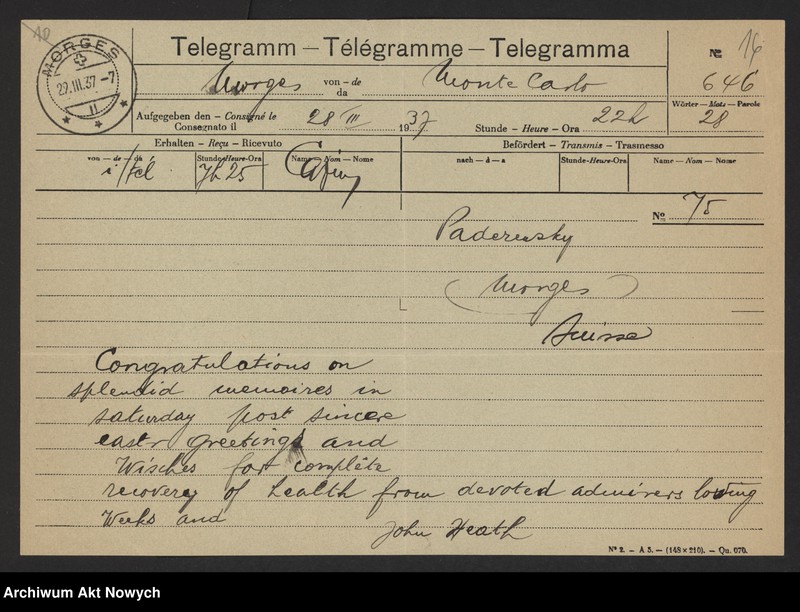 10
MORGES
29.III.37 -7
11
Telegramm – Télégramme – Telegramma
№ 14
Morges von - de da Monte Carlo
646
Wörter – Mots – Parole
28
Aufgegeben den - Consigné le
Consegnato il 28 III 1937 Stunde - Heure - Ora 22h
Erhalten - Reçu - Ricevuto
Befördert - Transmis - Trasmesso
von – de – da Stunde-Heure-Ora Name – Nom – Nome
nach – à – a Stunde-Heure-Ora Name – Nom – Nome
7h25
№ 75
Paderewsky
(Morges)
Suisse
Congratulations on
splendid memoires in
saturday post sincere
eastr greetings and
Wisches fort complête
recovery of health from devoted admirers loving
Weeks and
John Heath
Nº 2. – A 5. – (148×210). – Qu. 070.
Archiwum Akt Nowych